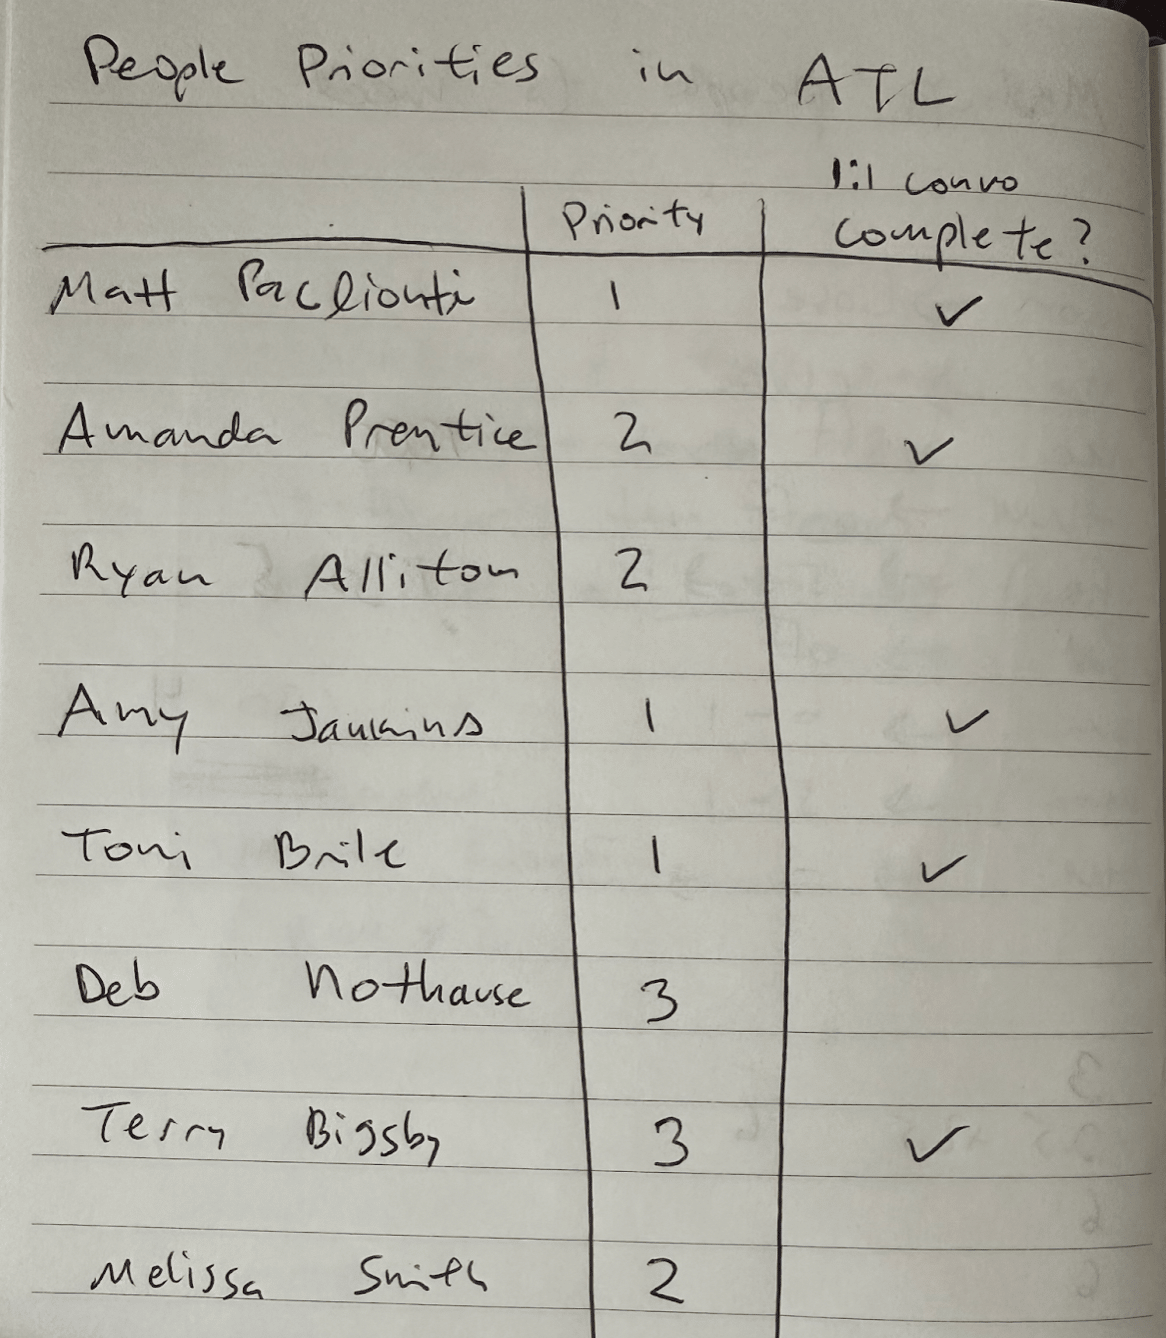 People Priorities in ATL
1:1 convo
Priority complete?
Matt Paclionti 1 ✓
Amanda Prentice 2 ✓
Ryan Alliton 2
Amy Jankins 1 ✓
Toni Brile 1 ✓
Deb Nothause 3
Terry Bigsby 3 ✓
Melissa Smith 2